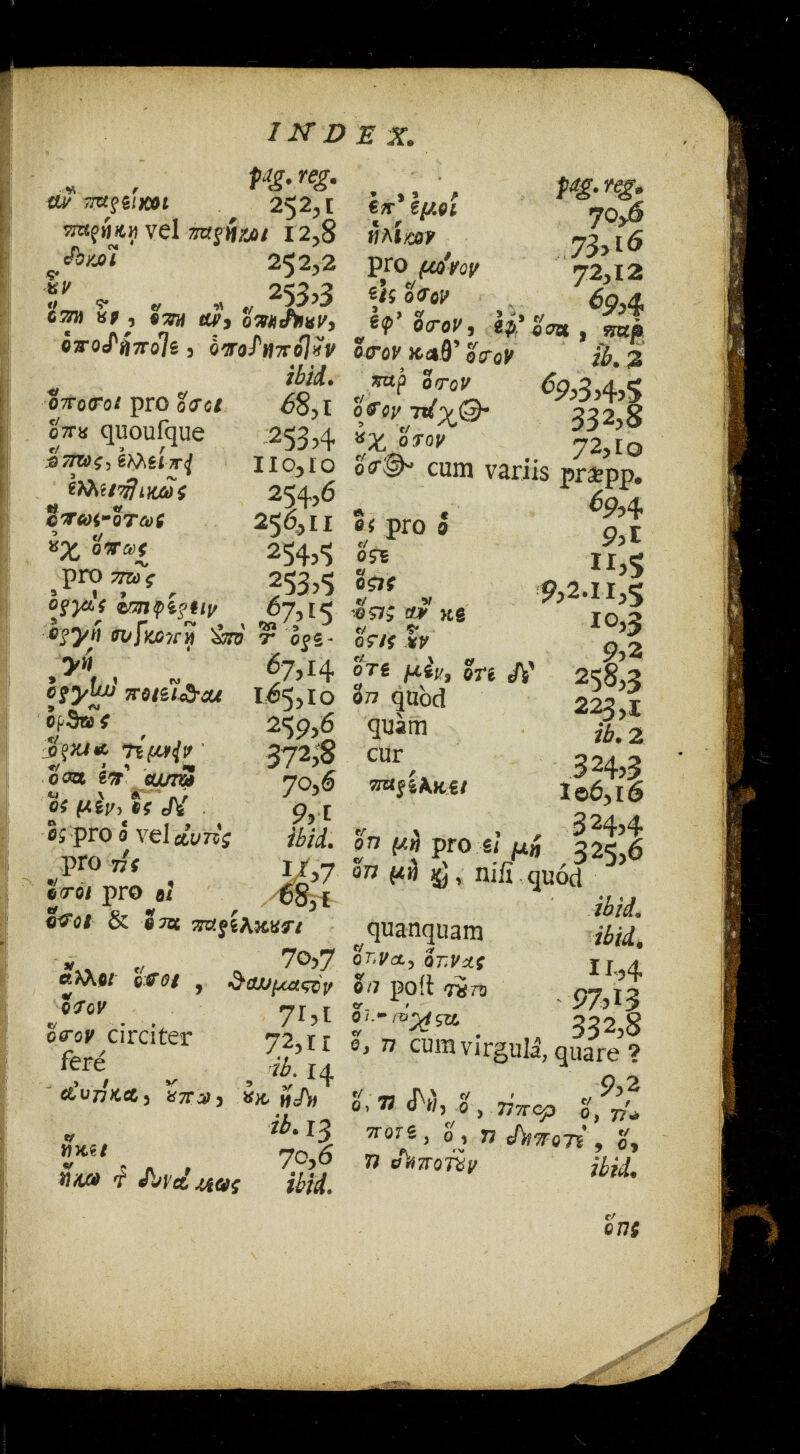 INDEX.
pag. reg.
ἂν παρείκοι 252,1
παρήκῃ vel παρήκοι 12,8
δοκοῖ 252,2
ἦν 253,3
ὅπη οὖν, ὅπη ἂν, ὁπηδηοῦν,
ὁποδήποτε, ὁποδηποτοῦν
ibid.
ὁπόσοι pro ὅσοι 68,1
ὅπου quousque 253,4
ὅπως, ἐλλείπει 110,10
ἐλλειπτικῶς 254,6
ὅπως-ὅτως 256,11
οὐχ ὅπως 254,5
pro πῶς 253,5
ὀργὰς ἐπιφέρειν 67,15
ὀργὴ συγκοπὴ ἀπὸ τ ὀρε-
γὴ 67,14
ὀργὴν ποιεῖσθαι 165,10
ὀρθῶς 259,6
ὅρκια τέμνειν 372,8
ὅσα ἐπ' αὐτῷ 70,6
ὃς μὲν, ὃς δὲ 9,1
ὃς pro ὁ vel αὐτὸς ibid.
pro τίς 11,7
ὅσοι pro οἳ 68,1
ὅσοι & ὅσα παρέλκουσι
70,7
ἄλλοι ὅσοι, θαυμαστὸν
ὅσον 71,1
ὅσον circiter 72,11
feré ib. 14
αὐτίκα, οὔπω, οὐκ ἤδη
ib. 13
ἥκει 70,6
ἥκω τ δυνάμεως ibid.
pag. reg.
ἐπ' ἐμοὶ 70,6
ἡλίκον 73,16
pro μόνον 72,12
εἰς ὅσον 69,4
ἐφ' ὅσον, ἐφ' ὅσα, παρ
ὅσον καθ' ὅσον ib. 2
παρ ὅσον 69,3,4,5
ὅσον τάχος 332,8
οὐχ ὅσον 72,10
ὅσος cum variis præpp.
69,4
ὃς pro ὁ 9,1
ὅστε 11,5
ὅστις 9,2.11,5
ὅστις ἂν κε 10,3
ὅστις οὖν 9,2
ὅτε μὲν, ὅτε δ' 258,3
ὅτι quòd 223,1
quàm ib. 2
cur 324,3
παρέλκει 106,16
324,4
ὅτι μὴ pro εἰ μὴ 325,6
ὅτι μὴ καὶ, nisi quód
ibid.
quanquam ibid.
ὅτινα, ὅτινας 11,4
ὅτι post τοῦτο 97,13
ὅτι-τάχιστα 332,8
ὅ, τι cum virgulâ, quare?
9,2
ὅ, τι δὴ, ὅ, τίπερ ὅ, τί-
ποτε, ὅ, τι δήποτε, ὅ,
τι δηποτοῦν ibid.
ὅτις